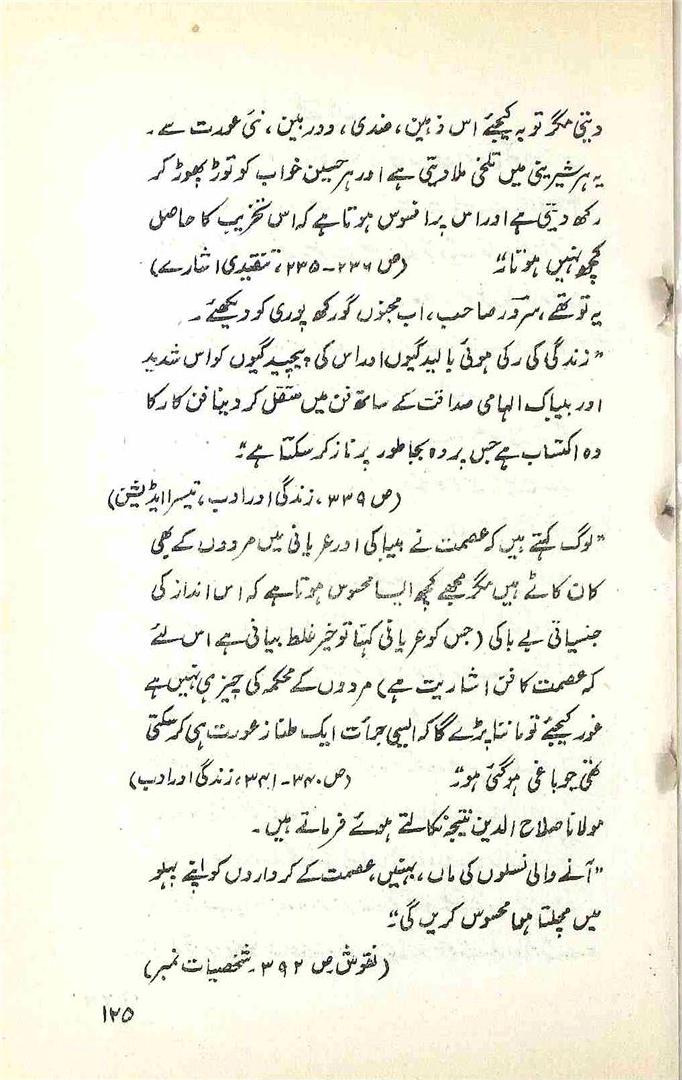 دیتی مگر توبہ کیجئے اس ذہین، ضدی، دوربین، نئی عورت سے۔
یہ ہر شیرینی میں تلخی ملا دیتی ہے اور ہر حسین خواب کو توڑ پھوڑ کر
رکھ دیتی ہے اور اس پر افسوس ہوتا ہے کہ اس تخریب کا حاصل
کچھ نہیں ہوتا"۔ (ص ۲۳۶-۲۳۵، تنقیدی اشارے)
یہ تو تھے، سرور صاحب، اب مجنوں گورکھ پوری کو دیکھئے۔
"زندگی کی رکی ہوئی بالیدگیوں اور اس کی پیچیدگیوں کو اس شدید
اور بیباک الہامی صداقت کے ساتھ فن میں منتقل کر دینا فن کار کا
وہ اکتساب ہے جس پر وہ بجا طور پر ناز کر سکتا ہے"۔
(ص ۳۳۹، زندگی اور ادب، تیسرا ایڈیشن)
"لوگ کہتے ہیں کہ عصمت نے بیباکی اور عریانی میں مردوں کے بھی
کان کاٹے ہیں مگر مجھے کچھ ایسا محسوس ہوتا ہے کہ اس انداز کی
جنسیاتی بے باکی (جس کو عریانی کہنا تو خیر غلط بیانی ہے اس لئے
کہ عصمت کا فن اشاریت ہے) مردوں کے محکمہ کی چیز ہی نہیں ہے
غور کیجئے تو ماننا پڑے گا کہ ایسی جرأت ایک طناز عورت ہی کر سکتی
تھی جو باغی ہو گئی ہو"۔ (ص ۳۴۰-۳۴۱، زندگی اور ادب)
مولانا صلاح الدین نتیجہ نکالتے ہوئے فرماتے ہیں۔
"آنے والی نسلوں کی ماں، بہنیں، عصمت کے کرداروں کو اپنے پہلو
میں مچلتا ہوا محسوس کریں گی"۔
(نقوش ص ۳۹۲۔ شخصیات نمبر)
۱۲۵